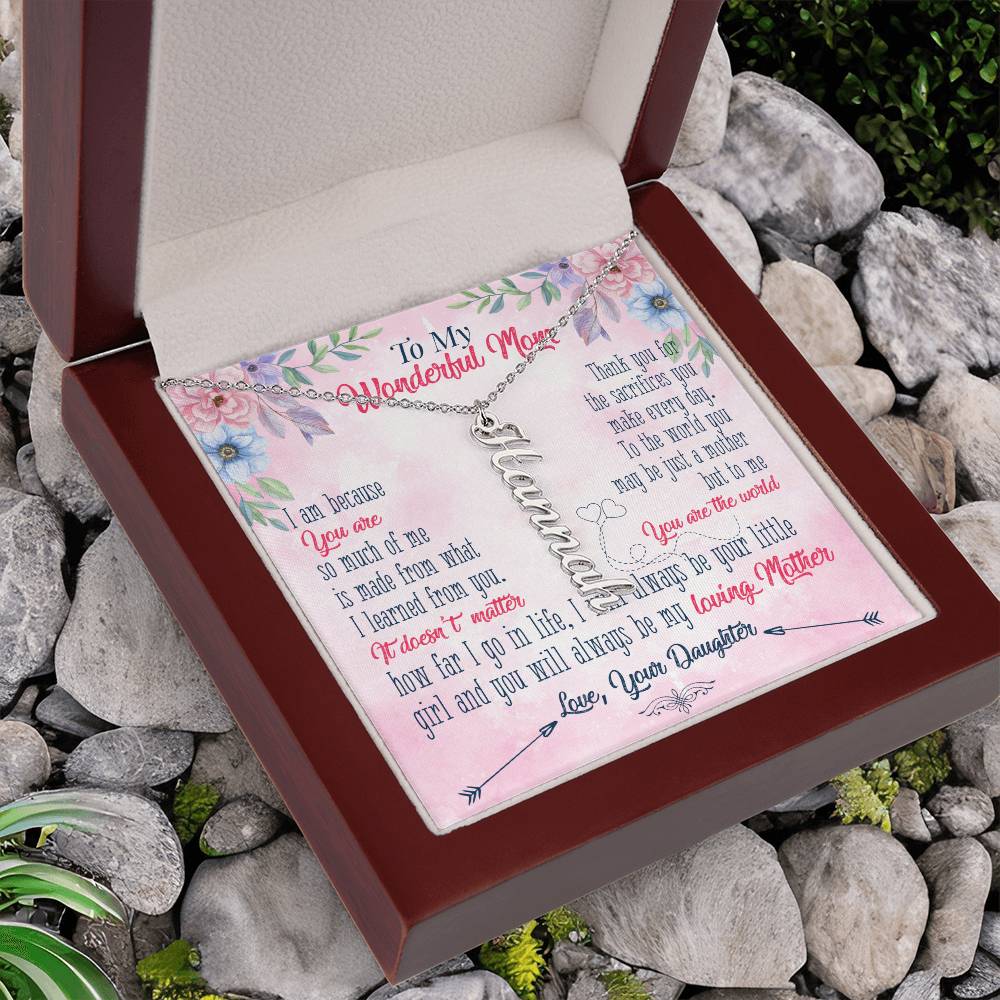 To My
Wonderful Mom
I am because
You are
so much of me
is made from what
I learned from you.
It doesn't matter
Thank you for
the sacrifices you
make every day.
To the world you
may be just a mother
but to me
You are the world
how far I go in life, I always be your little
girl and you will always be my loving Mother
Love, Your Daughter
Hannah